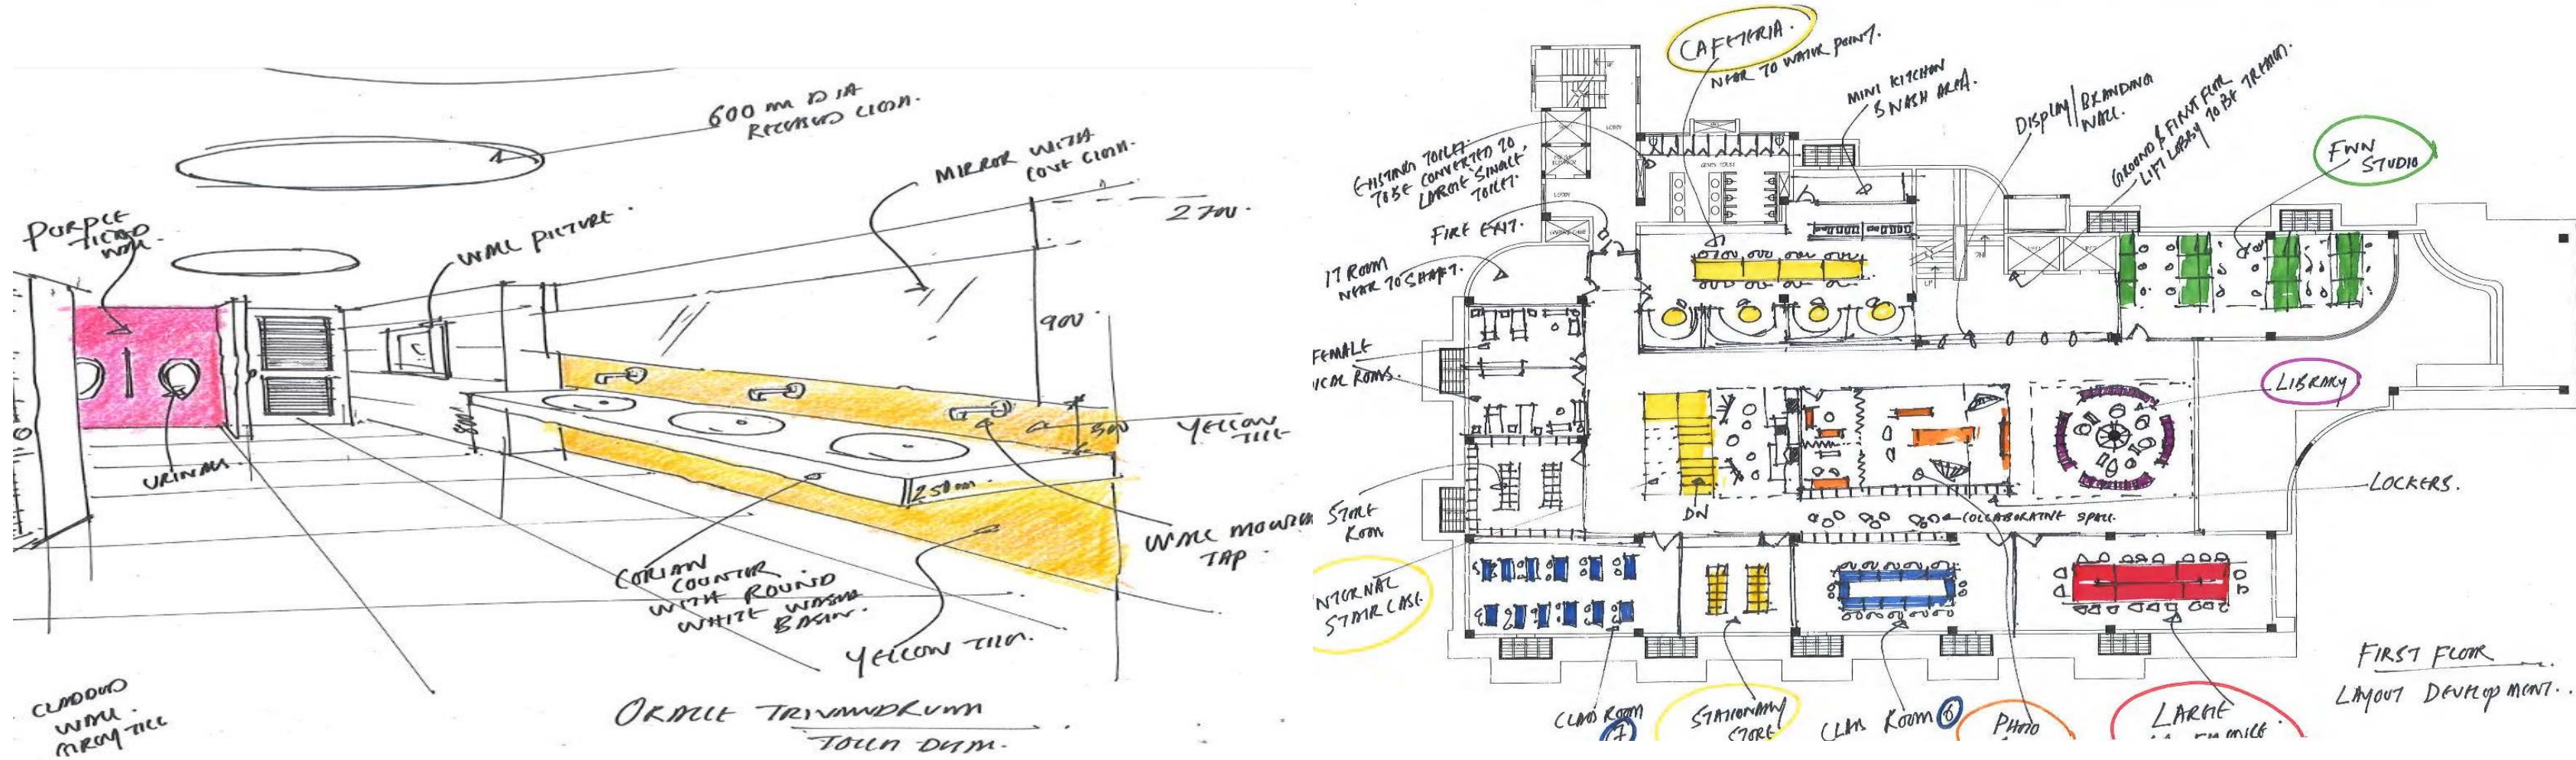 600 mm DIA
RECESSED
MIRROR WITH
COVE
2700.
PURPLE
TILED
WALL.
WALL PICTURE.
900.
300
YELLOW
TILE
URINALS
250mm.
WALL MOUNTED
TAP.
CORIAN
COUNTER
WITH ROUND
WHITE WASH
BASIN.
YELLOW TILE.
CLADDED
WALL.
ORACLE TRIVANDRUM
CAFETERIA.
NEAR TO WATER POINT.
MINI KITCHEN
& WASH AREA.
DISPLAY/BRANDING
WALL.
GROUND & FIRST FLOOR
LIFT LOBBY TO BE
STUDIO
EXISTING TOILET.
TO BE CONVERTED TO
LARGE SINGLE
TOILET.
LOBBY
LOBBY
FIRE EXIT.
IT ROOM
NEAR TO SHAFT.
UP
FEMALE
ROOMS.
LIBRARY
LOCKERS.
STORE
ROOM
DN
COLLABORATIVE SPACE.
NTERNAL
STAIR CASE.
FIRST FLOOR
LAYOUT DEVELOPMENT.
CLASS ROOM
7
STATIONARY
STORE
CLASS ROOM 6
PHOTO
LARGE